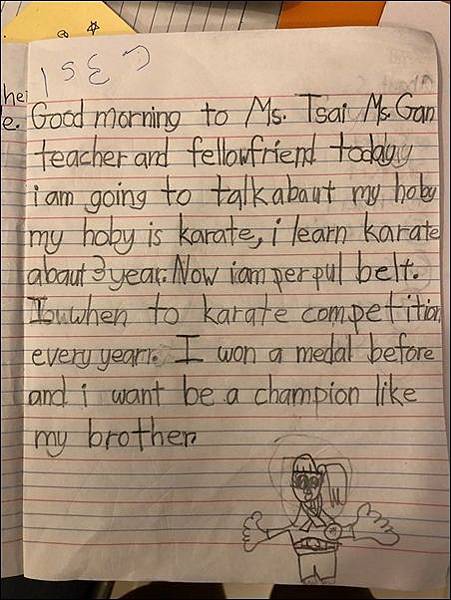 he
e.
Good morning to Ms. Tsai Ms. Gan
teacher and fellowfriend today
i am going to talk abaut my hoby
my hoby is karate, i learn karate
abaut 3 year. Now iam perpul belt.
when to karate competition
every year. I won a medal before
and i want be a champion like
my brother